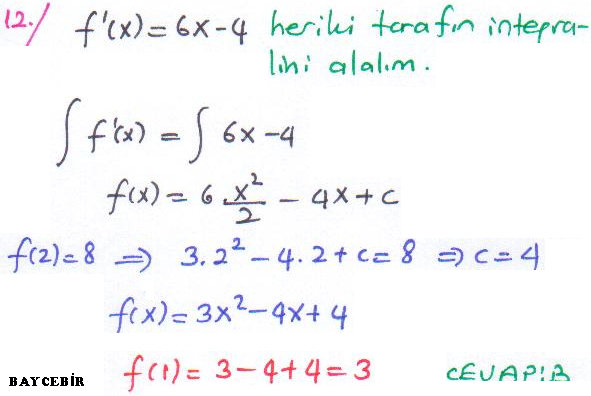 12./ f'(x) = 6x-4 her iki tarafın integra-
lini alalım.
∫ f'(x) = ∫ 6x-4
f(x) = 6 . x²/2 - 4x + c
f(2)=8 ⇒ 3.2² - 4.2 + c = 8 ⇒ c = 4
f(x) = 3x² - 4x + 4
f(1) = 3 - 4 + 4 = 3 CEVAP: B
BAYCEBİR